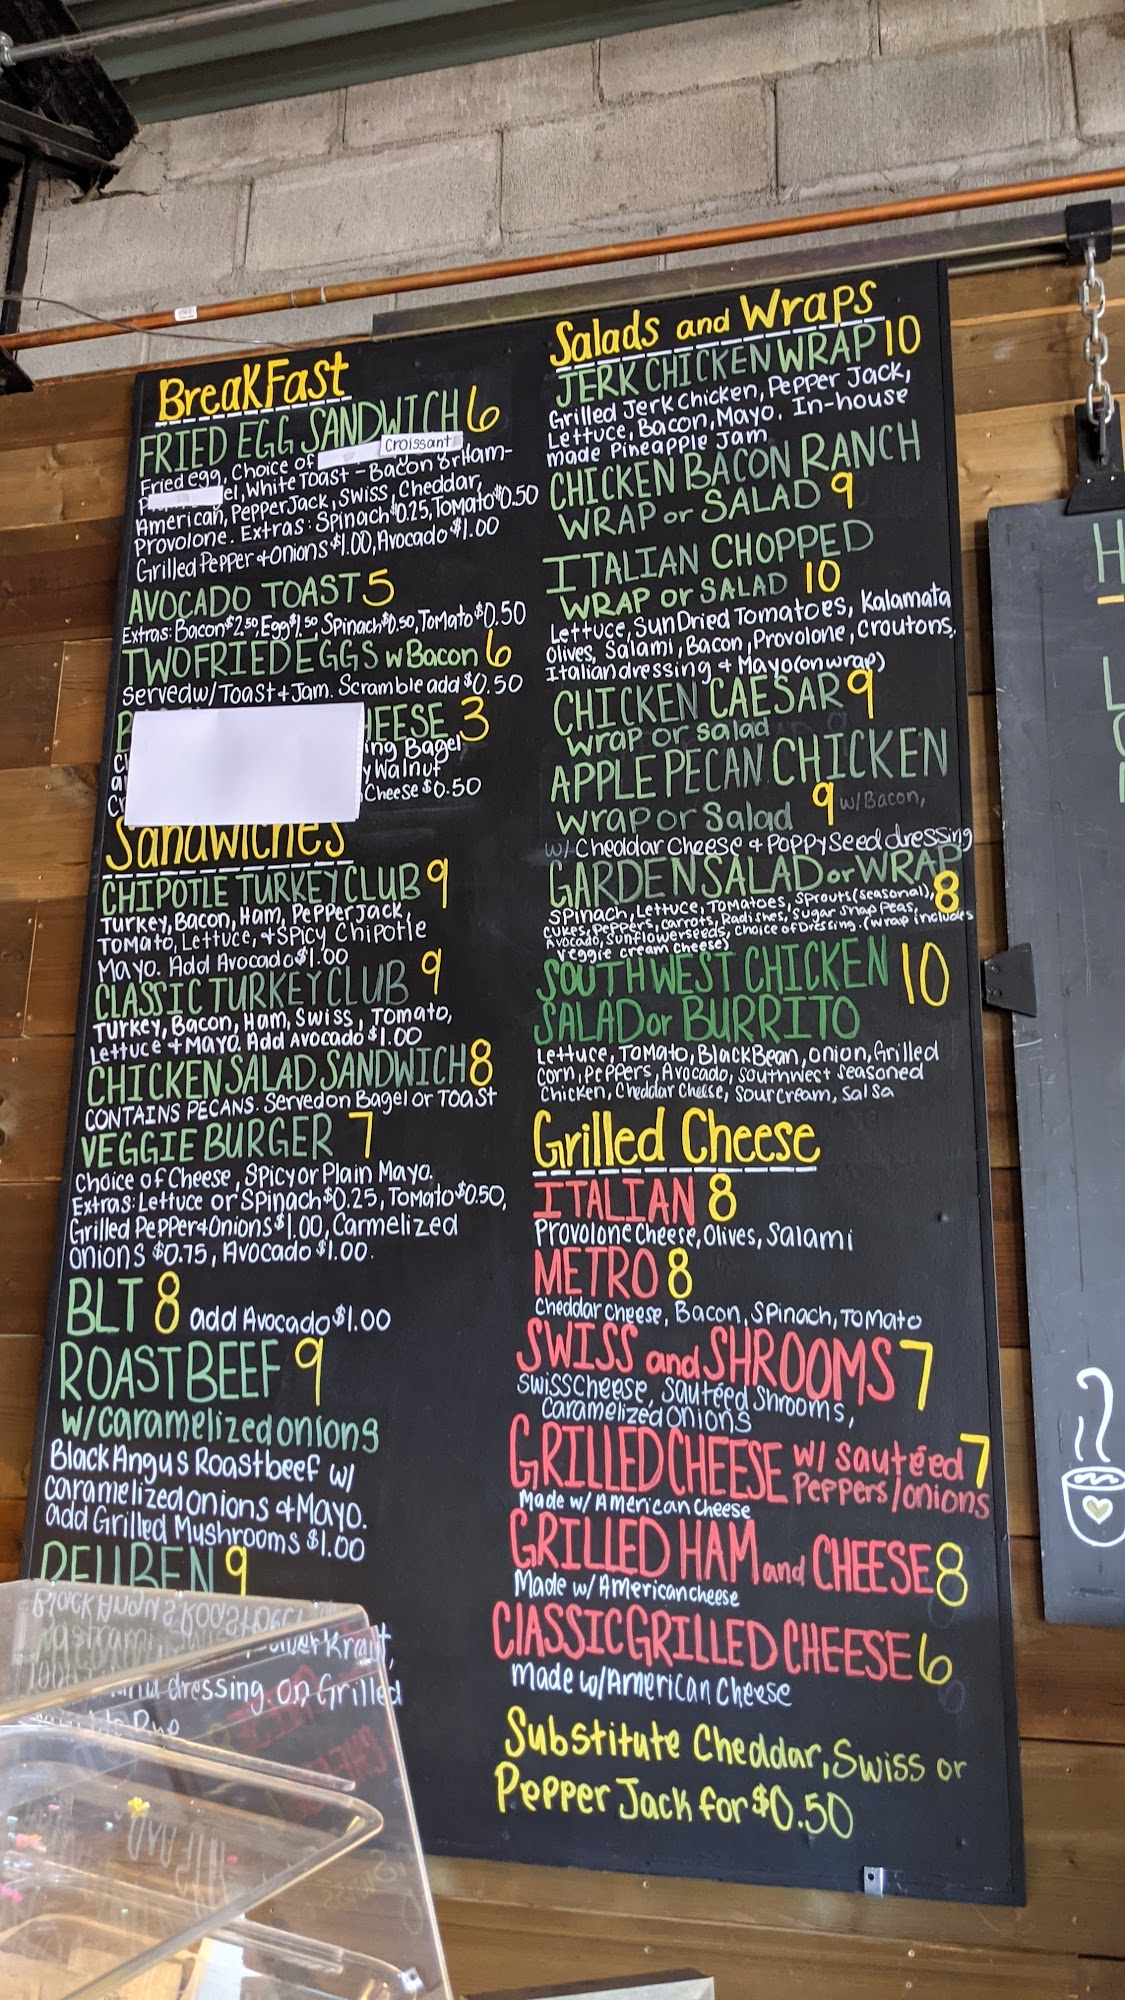 BreakFast
FRIED EGG SANDWICH 6
Croissant
Fried egg, Choice of
el, White Toast - Bacon or Ham-
American, PepperJack, Swiss, Cheddar,
Provolone. Extras: Spinach $0.25, Tomato $0.50
Grilled Pepper + Onions $1.00, Avocado $1.00
AVOCADO TOAST 5
Extras: Bacon $2.50, Egg $1.50 Spinach $0.50, Tomato $0.50
TWO FRIED EGGS w Bacon 6
Served w/ Toast + Jam. Scramble add $0.50
HEESE 3
ing Bagel
y Walnut
Cheese $0.50
Sandwiches
CHIPOTLE TURKEY CLUB 9
Turkey, Bacon, Ham, PePPer Jack,
Tomato, Lettuce, + Spicy Chipotle
Mayo. Add Avocado $1.00
CLASSIC TURKEY CLUB 9
Turkey, Bacon, Ham, Swiss, Tomato,
Lettuce + Mayo. Add Avocado $1.00
CHICKEN SALAD SANDWICH 8
CONTAINS PECANS. Served on Bagel or Toast
VEGGIE BURGER 7
Choice of Cheese, Spicy or Plain Mayo.
Extras: Lettuce or Spinach $0.25, Tomato $0.50,
Grilled Pepper + Onions $1.00, Carmelized
onions $0.75, Avocado $1.00.
BLT 8 add Avocado $1.00
ROAST BEEF 9
w/caramelized onions
Black Angus Roastbeef w/
caramelized onions + Mayo.
add Grilled Mushrooms $1.00
REUBEN 9
dressing. on Grilled
Salads and Wraps
JERK CHICKEN WRAP 10
Grilled Jerk Chicken, Pepper Jack,
Lettuce, Bacon, Mayo. In-house
made Pineapple Jam
CHICKEN BACON RANCH
WRAP or SALAD 9
ITALIAN CHOPPED
WRAP or SALAD 10
Lettuce, Sun Dried Tomatoes, Kalamata
Olives, Salami, Bacon, Provolone, Croutons,
Italian dressing + Mayo (on wrap)
CHICKEN CAESAR 9
wrap or salad
APPLE PECAN CHICKEN
wrap or Salad 9 w/ Bacon,
w/ Cheddar Cheese + Poppy Seed dressing
GARDEN SALAD or WRAP 8
Spinach, Lettuce, Tomatoes, Sprouts (seasonal),
cukes, Peppers, carrots, Radishes, Sugar Snap Peas,
Avocado, Sunflower seeds, Choice of Dressing. (wrap includes
veggie cream cheese)
SOUTHWEST CHICKEN 10
SALAD or BURRITO
Lettuce, Tomato, Black Bean, onion, Grilled
corn, Peppers, Avocado, Southwest seasoned
Chicken, Cheddar Cheese, Sour cream, Salsa
Grilled Cheese
ITALIAN 8
Provolone Cheese, Olives, Salami
METRO 8
Cheddar cheese, Bacon, Spinach, Tomato
SWISS and SHROOMS 7
Swiss Cheese, Sautéed Shrooms,
Caramelized Onions
GRILLED CHEESE w/ sautéed 7
Peppers/onions
Made w/ American Cheese
GRILLED HAM and CHEESE 8
Made w/ American cheese
CLASSIC GRILLED CHEESE 6
made w/American Cheese
Substitute Cheddar, Swiss or
Pepper Jack for $0.50